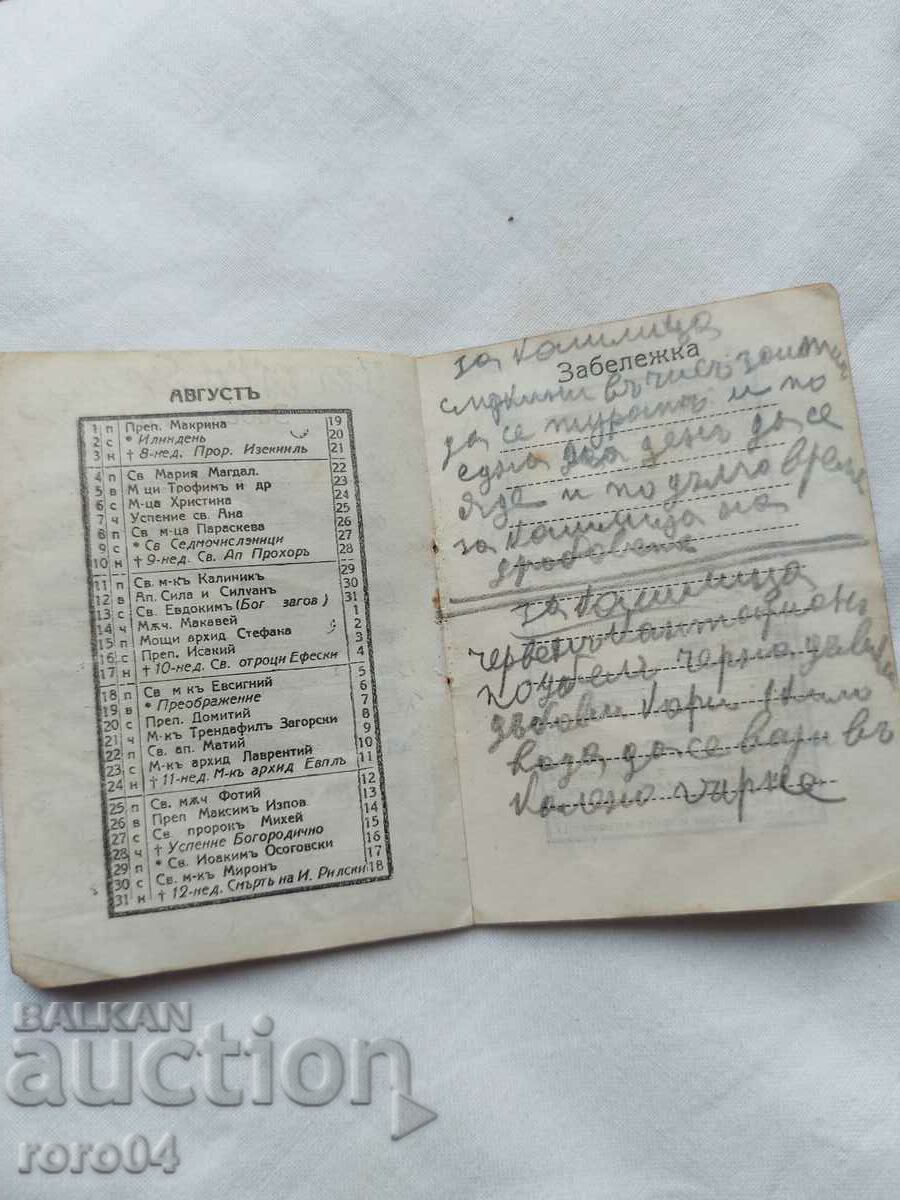 АВГУСТЪ
1 п Преп. Макрина 19
2 с * Илиндень 20
3 н † 8-нед. Прор. Изекииль 21
4 п Св Мария Магдал. 22
5 в М ци Трофимъ и др 23
6 с М-ца Христина 24
7 ч Успение св. Ана 25
8 п Св м-ца Параскева 26
9 с * Св Седмочислэници 27
10 н † 9-нед. Св. Ап Прохоръ 28
11 п Св. м-къ Каликикъ 29
12 в Ап. Сила и Силуанъ 30
13 с Св. Евдокимъ (Бог загов) 31
14 ч Мѫч. Макавей 1
15 п Мощи архид Стефана 2
16 с Преп. Исакий 3
17 н † 10-нед. Св. отроци Ефески 4
18 п Св м къ Евсигний 5
19 в * Преображение 6
20 с Преп. Домитий 7
21 ч М-къ Трендафилъ Загорски 8
22 п Св. ап. Матий 9
23 с М-къ архид Лаврентий 10
24 н † 11-нед. М-къ архид Евплъ 11
25 п Св. мѫч Фотий 12
26 в Преп Максимъ Изпов 13
27 с Св пророкъ Михей 14
28 ч † Успение Богородично 15
29 п * Св. Иоакимъ Осоговски 16
30 с Св. м-къ Миронъ 17
31 н † 12-нед. Смърть на И. Рилски 18
за кашлица
Забележка
смокини въ чисъ
да се турятъ и по
една два денъ да се
яде и по дълго време
за кашлица на
дробовете
за кашлица
червенъ кантарионъ
черна
дѫбови кори 1 кило
коза да се вари въ
калено гърне
BALKAN
auction
roro04